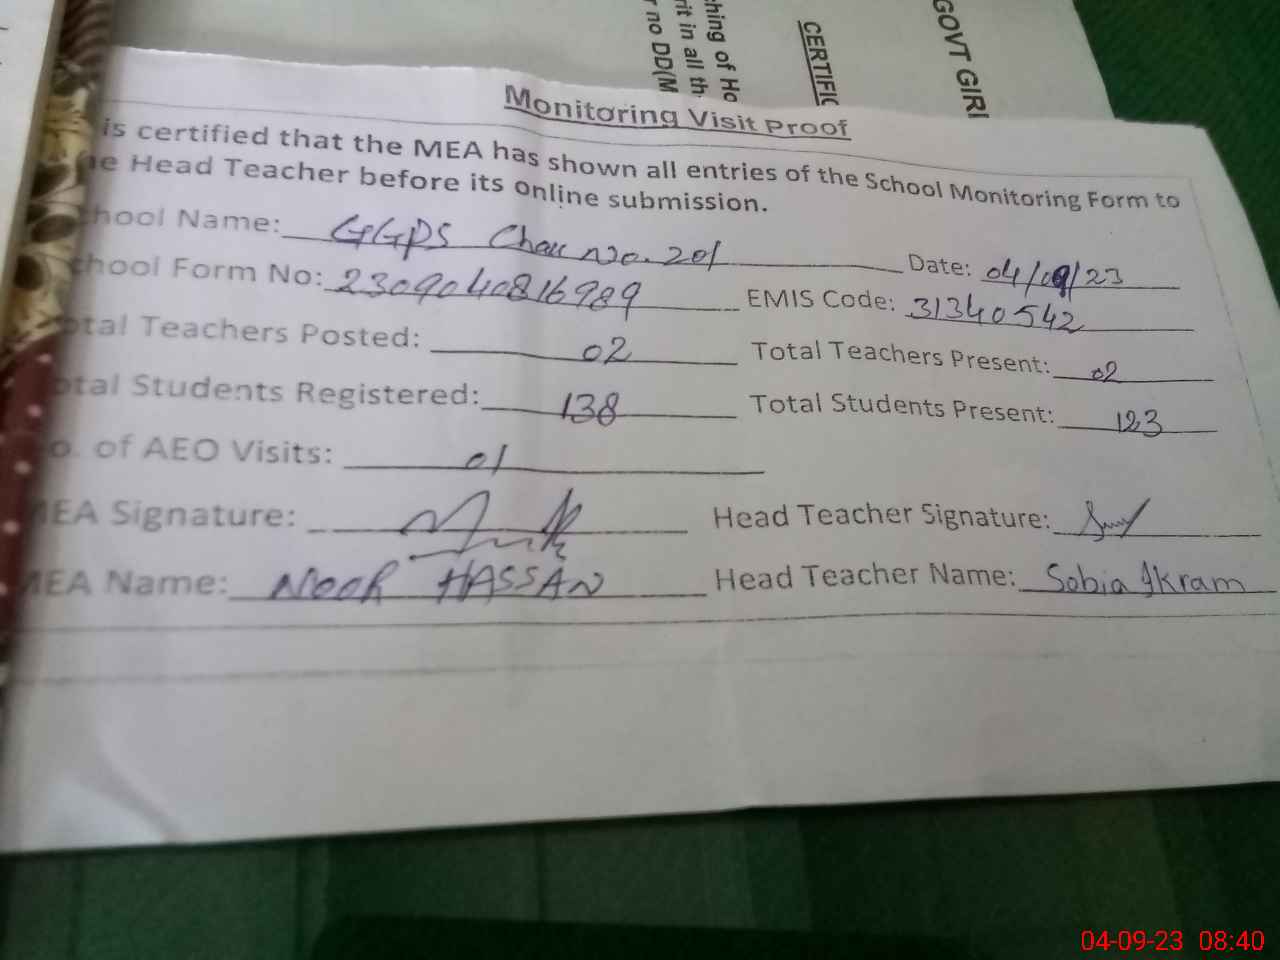 GOVT GIRL
CERTIFIC
ching of Ho
rit in all th
r no DD(M
Monitoring Visit Proof
is certified that the MEA has shown all entries of the School Monitoring Form to
he Head Teacher before its online submission.
chool Name: GGPS Chak No. 201 Date: 04/09/23
chool Form No: 2309040816989 EMIS Code: 31340542
otal Teachers Posted: 02 Total Teachers Present: 02
otal Students Registered: 138 Total Students Present: 123
o. of AEO Visits: 01
MEA Signature: Head Teacher Signature:
MEA Name: NOOR HASSAN Head Teacher Name: Sobia Ikram
04-09-23 08:40